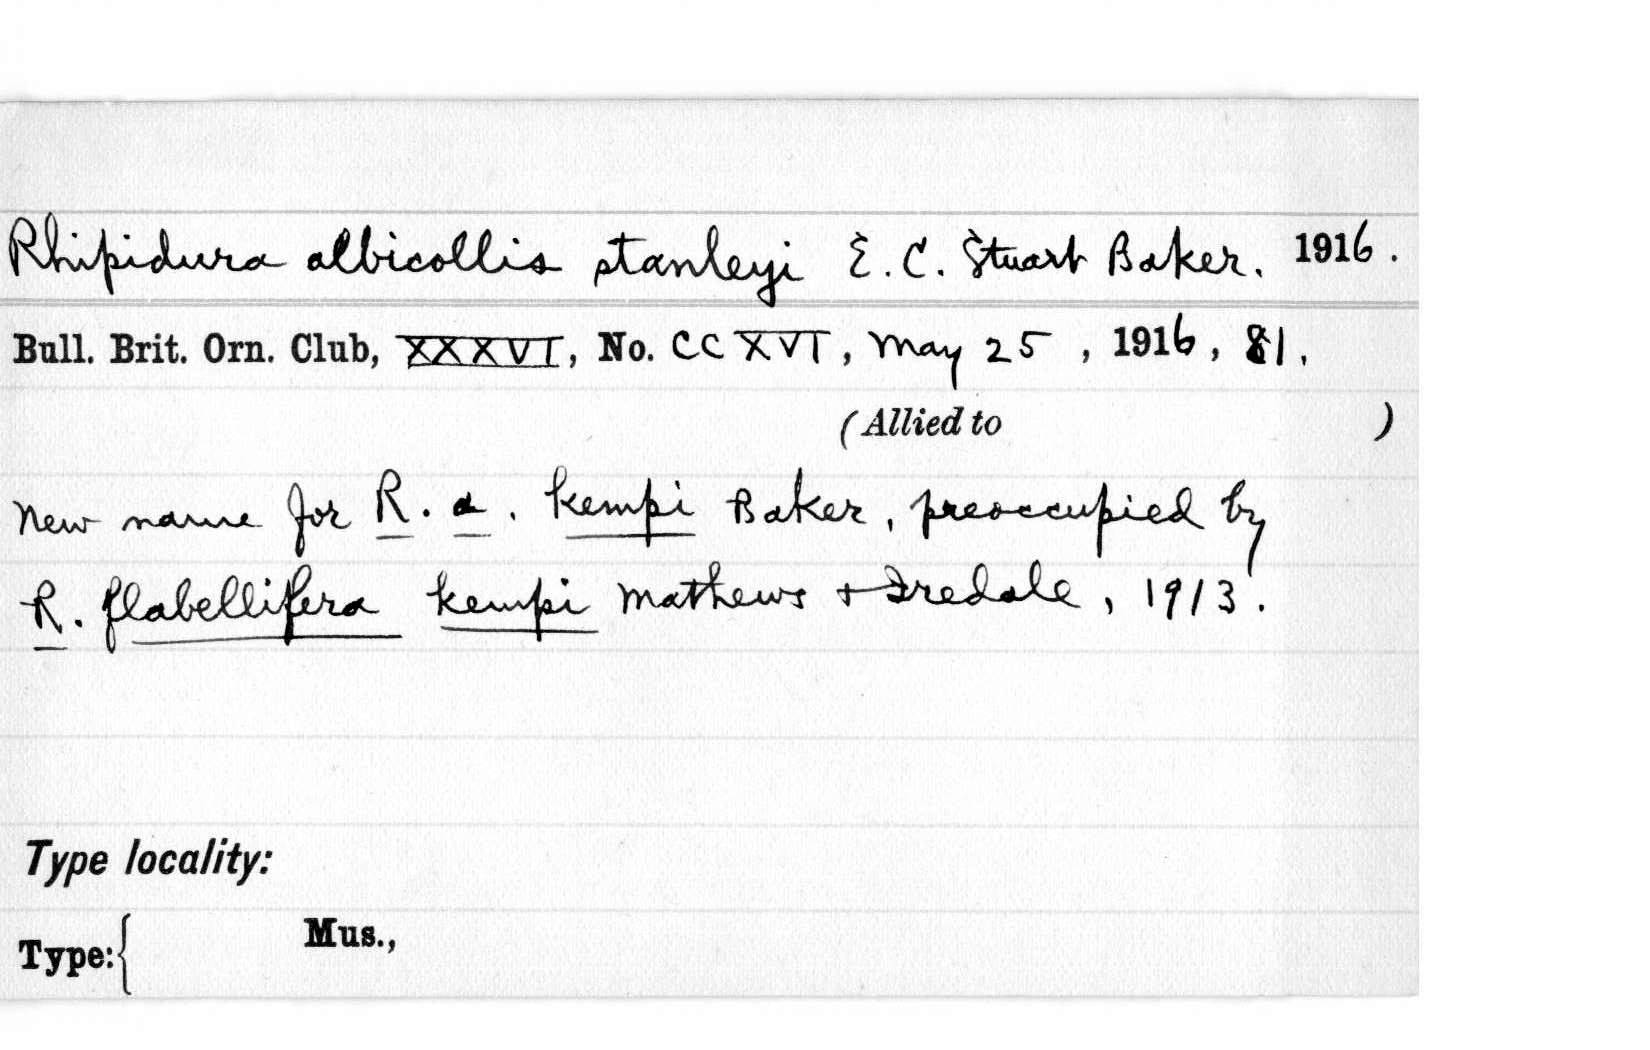 Rhipidura albicollis stanleyi E. C. Stuart Baker. 1916.
Bull. Brit. Orn. Club, XXXVI, No. CCXVI, May 25, 1916, 81.
(Allied to )
New name for R. a. kempi Baker, preoccupied by
R. flabellifera kempi Mathews + Iredale, 1913.
Type locality:
Mus.,
Type:{